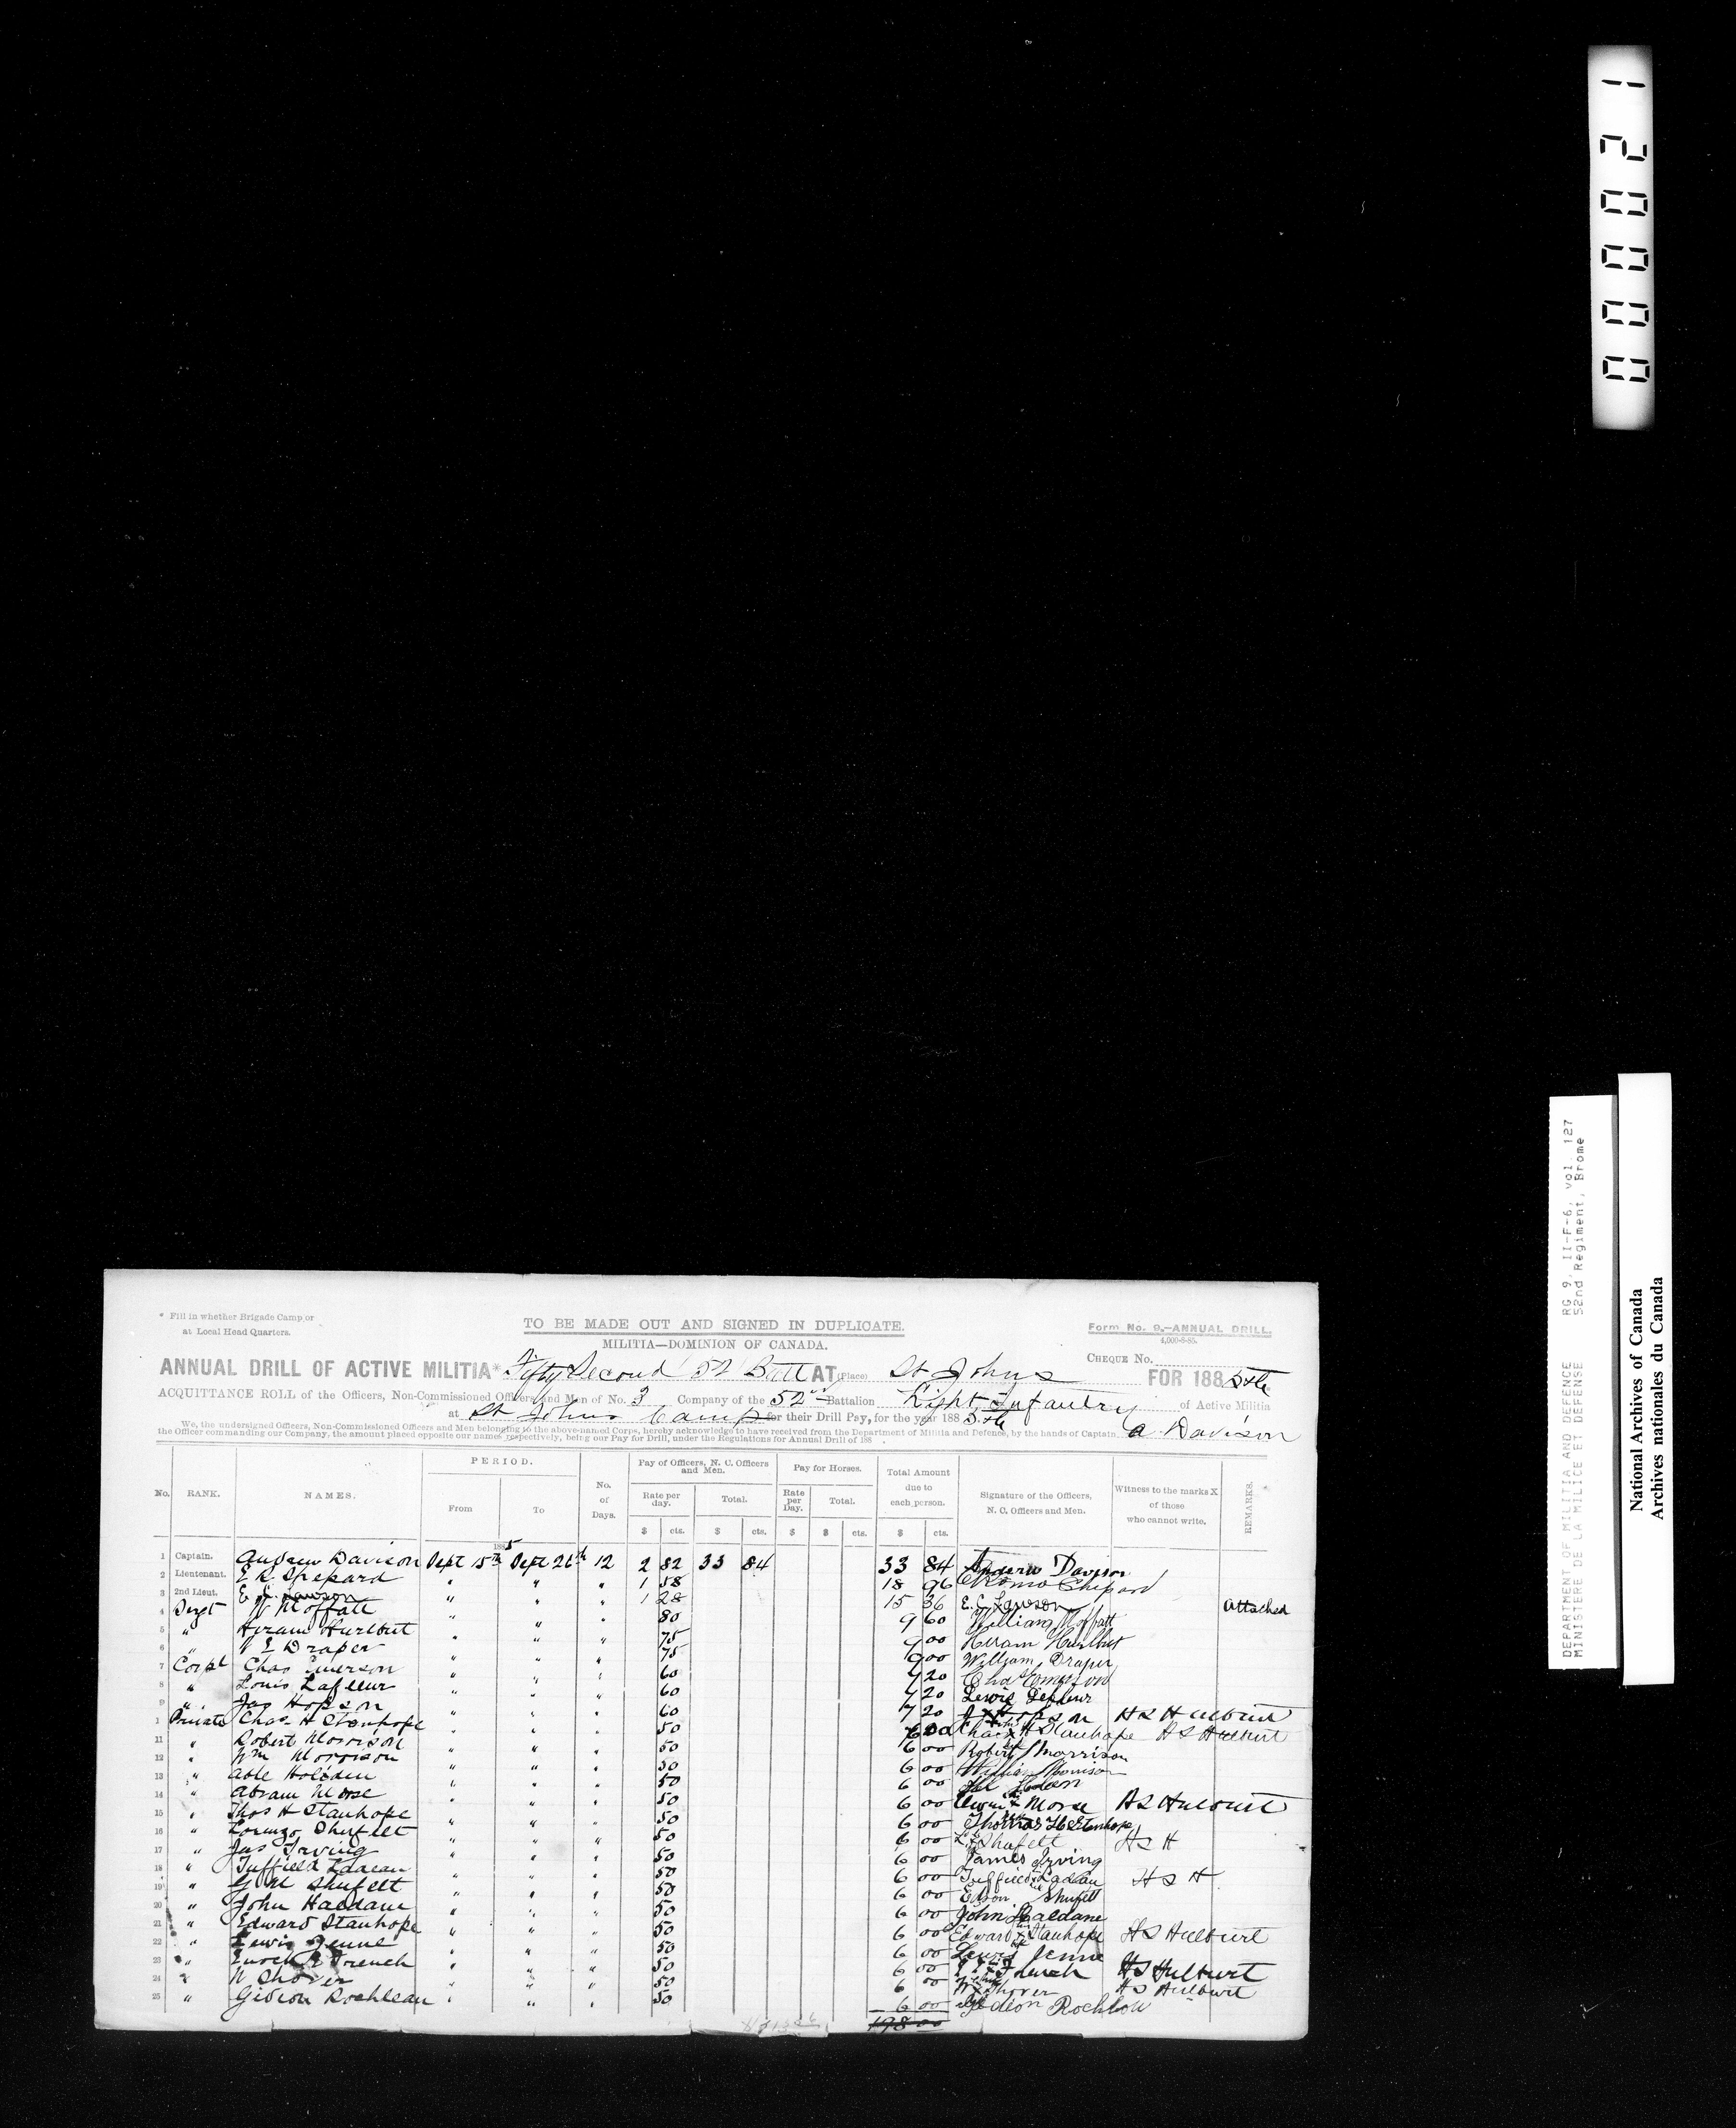 00021
* Fill in whether Brigade Camp or
at Local Head Quarters.
TO BE MADE OUT AND SIGNED IN DUPLICATE.
Form No. 9.—ANNUAL DRILL.
4,000-8-85.
MILITIA—DOMINION OF CANADA.
CHEQUE No.
ANNUAL DRILL OF ACTIVE MILITIA* Fifty Second 52 Batt AT (Place) St Johns FOR 188 5th
ACQUITTANCE ROLL of the Officers, Non-Commissioned Officers and Men of No. 3 Company of the 52nd Battalion Light Infantry of Active Militia
at St Johns Camp for their Drill Pay, for the year 188 5th
We, the undersigned Officers, Non-Commissioned Officers and Men belonging to the above-named Corps, hereby acknowledge to have received from the Department of Militia and Defence, by the hands of Captain A. Davison
the Officer commanding our Company, the amount placed opposite our names respectively, being our Pay for Drill, under the Regulations for Annual Drill of 188 .
No. RANK. NAMES. PERIOD. From To No. of Days. Pay of Officers, N. C. Officers and Men. Rate per day. Total. Pay for Horses. Rate per Day. Total. Total Amount due to each person. Signature of the Officers, N. C. Officers and Men. Witness to the marks X of those who cannot write. REMARKS.
$ cts. $ cts. $ $ cts. $ cts.
1885
1 Captain. Andrew Davison Sept 15th Sept 26th 12 2 82 33 84 33 84 Andrew Davison
2 Lieutenant. E R Shepard " " " 1 58 18 96
3 2nd Lieut. E. C. Lawson " " " 1 28 15 36 E. C. Lawson Attached
4 Sergt W Moffatt " " " 80 9 60 William Moffatt
5 " Hiram Hurlbut " " " 75 9 00 Hiram Hurlbut
6 " W E Draper " " " 75 9 00 William Draper
7 Corpl Chas Emerson " " " 60 7 20 Chas Emerson
8 " Louis Lafleur " " " 60 7 20 Lewis Lefleur
9 " Jas Hopson " " " 60 7 20 H S Hulburt
1 Private Chas H Stanhope " " " 50 6 00 Chas H Stanhope H S Hulburt
11 " Robert Morrison " " " 50 6 00 Robert Morrison
12 " Wm Morrison " " " 50 6 00 William Morrison
13 " Able Holden " " " 50 6 00
14 " Abram Morse " " " 50 6 00 Morse H S Hulburt
15 " Thos H Stanhope " " " 50 6 00 Thomas H Stanhope
16 " Lorenzo Shufelt " " " 50 6 00 L Shufelt H S H
17 " Jas Irving " " " 50 6 00 James Irving
18 " Tuffield Ladeau " " " 50 6 00 Tuffield Ladeau H S H
19 " Shufelt " " " 50 6 00 Edson Shufelt
20 " John Haldane " " " 50 6 00 John Haldane
21 " Edward Stanhope " " " 50 6 00 Edward Stanhope H S Hulburt
22 " Lewis Jenne " " " 50 6 00 Lewis Jenne
23 " Enoch French " " " 50 6 00 French H S Hulburt
24 " W Shover " " " 50 6 00 W Shover H S Hulburt
25 " Gideon Rochleau " " " 50 6 00 Gideon Rochlow
198 00
DEPARTMENT OF MILITIA AND DEFENCE RG 9, II-F-6, vol. 127
MINISTERE DE LA MILICE ET DEFENSE 52nd Regiment, Brome
National Archives of Canada
Archives nationales du Canada